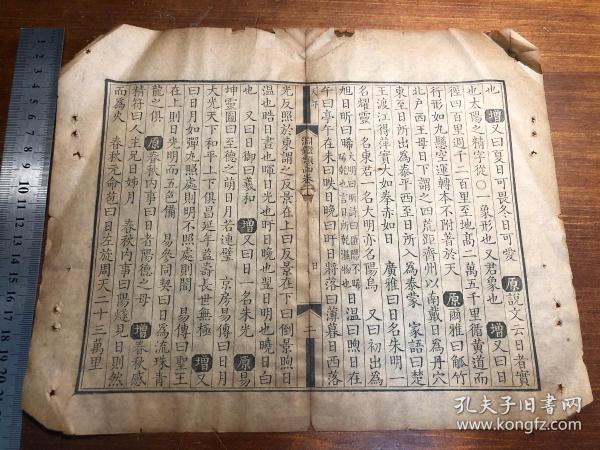 也 增又曰夏日可畏冬日可愛 原說文云日者實
也太陽之精字從○一象形也又君象也 增又曰日
徑四百里周千二百里至地高二萬五千里循黃道而
行形如九懸空運轉本不附着於天 原爾雅曰觚竹
北戶西王母日下謂之四荒距齊州以南戴日為丹穴
東至日所出為泰平西至日所入為泰蒙 家語曰楚
王渡江得萍實大如拳赤如日 廣雅曰日名朱明一
名耀靈一名東君一名大明亦名陽烏 又曰初出為
旭日昕曰晞 日溫曰煦日在
午曰亭午在未曰昳日晚曰旰日將落曰薄暮日西落
天部
淵鑑類函卷二
日
二
光反照於東謂之反景在上曰反景在下曰倒景煦日
溫也晧日晝也暉日光也旰日晚也翌日明也曉日白
也 又曰日御曰羲和 增又曰日一名朱光 原易
坤靈圖曰至德之萌日月若連璧 京房易傳曰日月
大光天下和平上下俱昌延年益壽長世無極 增又
曰日月如彈丸照處則明不照處則闇 易傳曰聖王
在上則日光明而五色備 易參同契曰日為流珠青
龍之俱 原春秋內事曰日者陽德之母 增春秋感
精符曰人主兄日姊月 春秋內事曰陽燧見日則然
而為火 春秋元命苞曰日左旋周天二十三萬里
孔夫子旧书网
book.kongfz.com